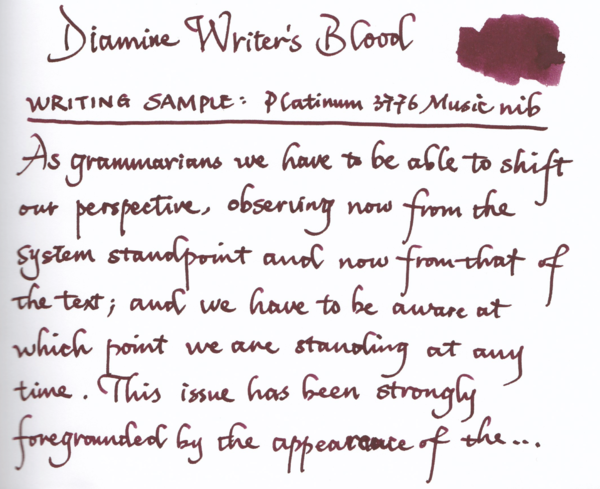 Diamine Writer's Blood
WRITING SAMPLE: Platinum 3776 Music nib
As grammarians we have to be able to shift
our perspective, observing now from the
system standpoint and now from that of
the text; and we have to be aware at
which point we are standing at any
time. This issue has been strongly
foregrounded by the appearance of the...